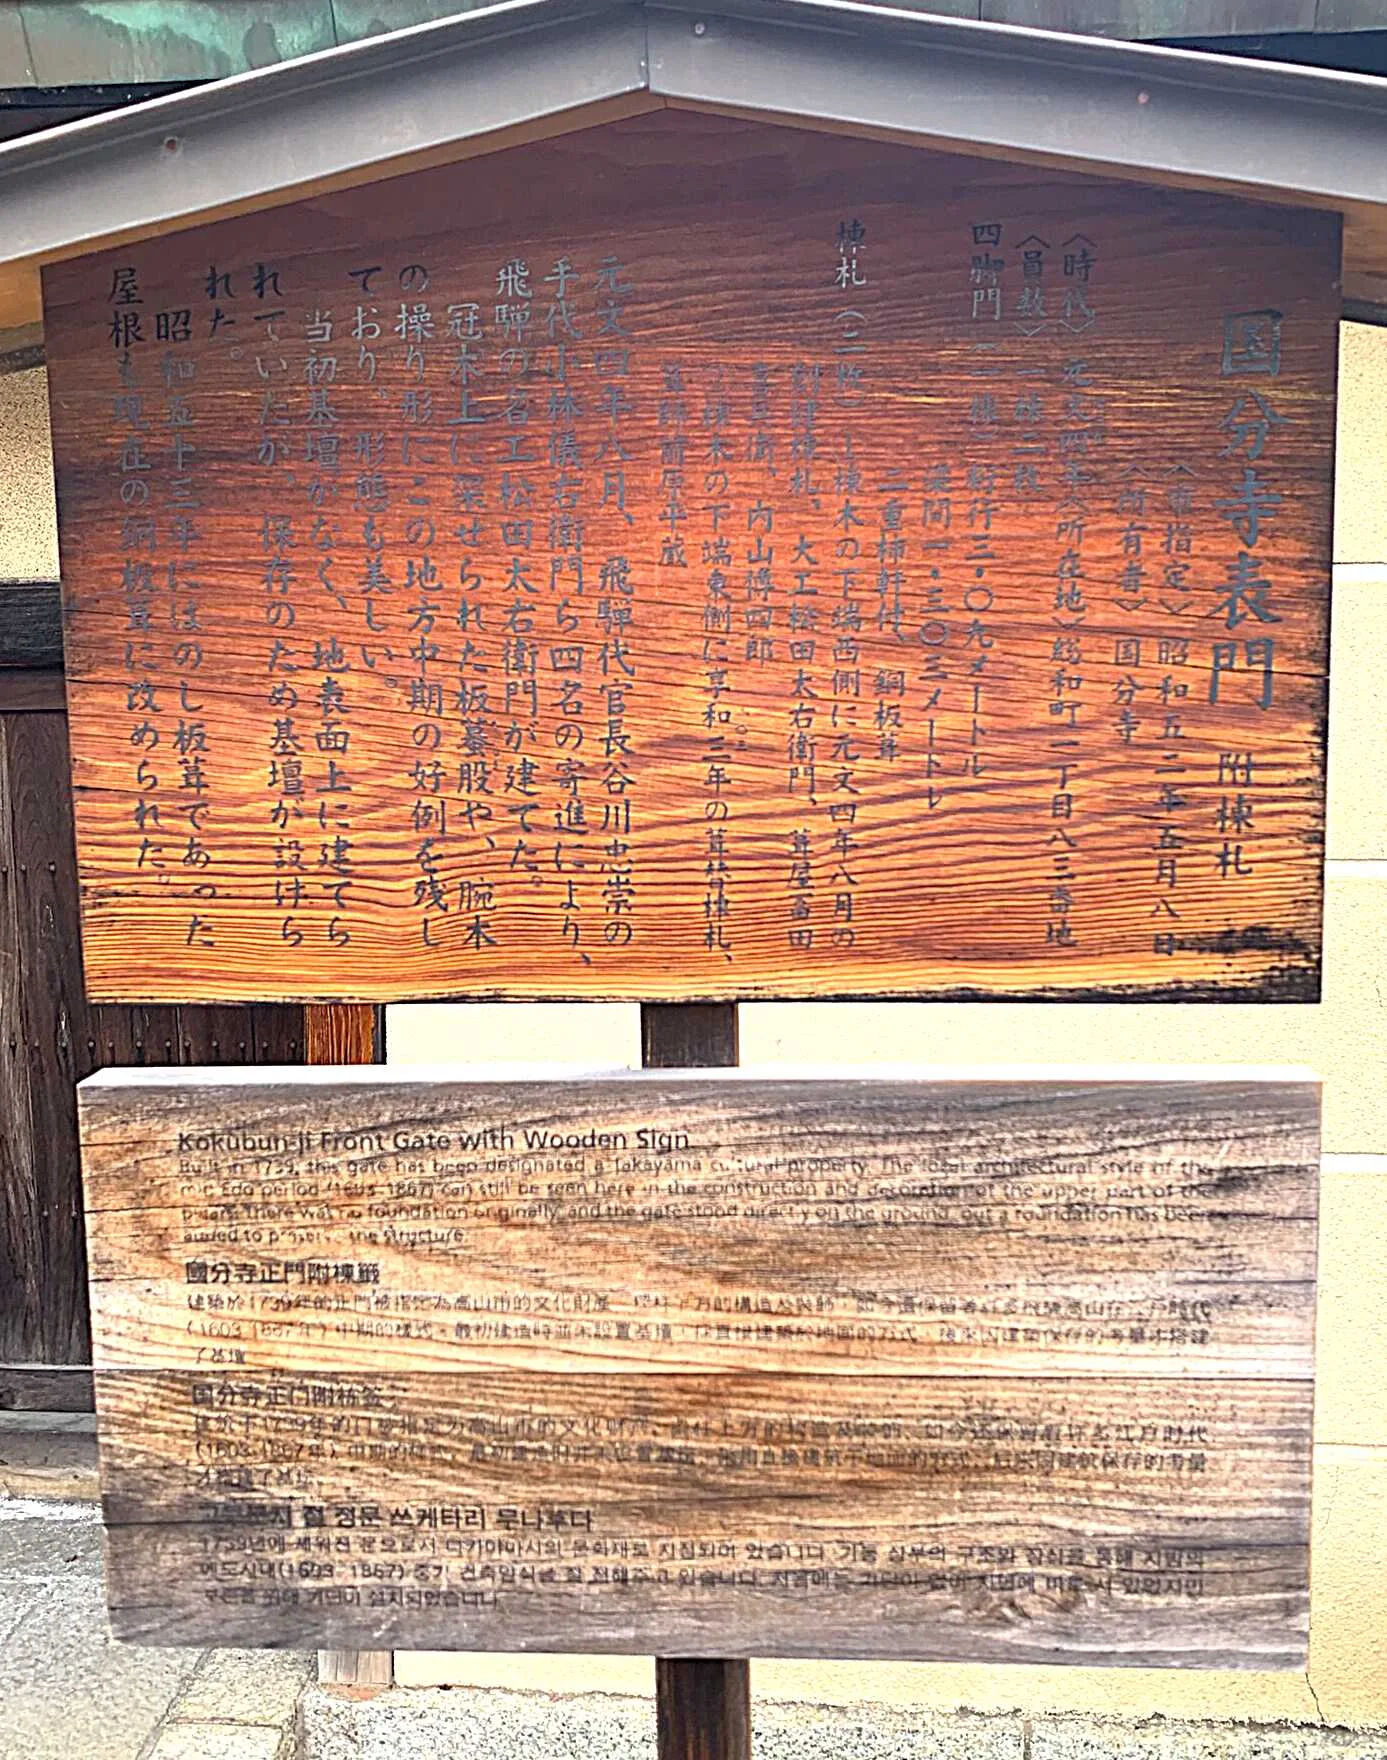 国分寺表門 附棟札
〈市指定〉昭和五二年五月八日
〈所有者〉国分寺
〈時代〉元文四年〈所在地〉総和町一丁目八三番地
〈員数〉一棟二枚
四脚門(一棟)桁行三・〇九メートル
梁間一・三〇三メートル
二重軒付、銅板葺
棟札(二枚) 棟木の下端西側に元文四年八月の
創建棟札、大工松田太右衛門、葺屋
内山博四郎
棟木の下端東側に享和三年の葺替棟札、
葺師前原平蔵
元文四年八月、飛騨代官長谷川忠崇の
手代小林儀右衛門ら四名の寄進により、
飛騨の名工松田太右衛門が建てた。
冠木上に深せられた板蟇股や、腕木
の操り形にこの地方中期の好例を残し
ており、形態も美しい。
当初基壇がなく、地表面上に建てら
れていたが、保存のため基壇が設けら
れた。
昭和五十三年にはのし板葺であった
屋根も現在の銅板葺に改められた。
Kokubun-ji Front Gate with Wooden Sign
Built in 1739, this gate has been designated a Takayama cultural property. The local architectural style of the
mid Edo period (1603-1867) can still be seen here in the construction and decoration of the upper part of the
pillars. There was no foundation originally, and the gate stood directly on the ground, but a foundation has been
added to preserve the structure.
國分寺正門附棟籤
建築於1739年的正門被指定為高山市的文化財產
(1603-1867年)中期的樣式。最初建造時並未設置基壇,
了基壇
国分寺正门附栋签
建筑于1739年的门被指定为高山市的文化财产,
(1603-1867年)中期的样式。最初建造时并未设置基坛,
才搭建了基坛。
고쿠분지 절 정문 쓰케타리 무나후다
1739년에 세워진 문으로서 다카야마시의 문화재로 지정되어 있습니다. 기둥 상부의 구조와 장식을 통해 지방의
에도시대(1603-1867) 중기 건축양식을 잘 전해주고 있습니다. 처음에는 기단이 없이 지면에 바로 서 있었지만
보존을 위해 기단이 설치되었습니다.